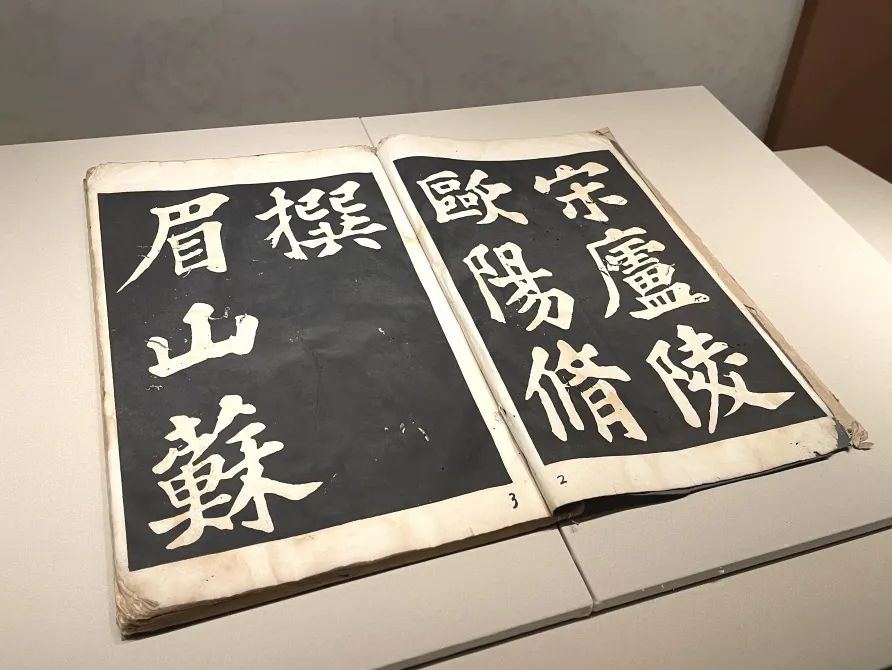 宋廬陵
歐陽脩
2
撰
眉山蘇
3